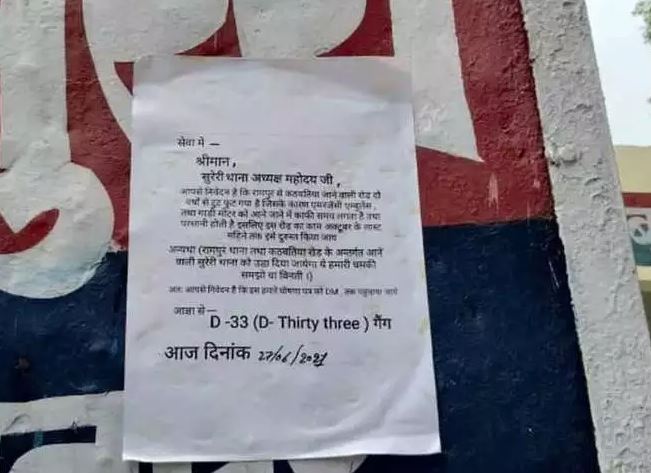 सेवा में —
श्रीमान ,
सुरेरी थाना अध्यक्ष महोदय जी ,
आपसे निवेदन है कि रामपुर से कठवतिया जाने वाली रोड दो
वर्षों से टूट फूट गया है जिसके कारण एमरजेंसी एम्बुलेंस ,
तथा गाडी मोटर को आने जाने में काफी समय लगता है तथा
परेशानी होती है इसलिए इस रोड का काम अक्टूबर के लास्ट
महिने तक इसे दुरुस्त किया जाय
अन्यथा (रामपुर थाना तथा कठवतिया रोड के अन्तर्गत आने
वाली सुरेरी थाना को उडा दिया जायेगा ये हमारी धमकी
समझो या विनती ।)
अतः आपसे निवेदन है कि इस हमारे घोषणा पत्र को DM , तक पहुंचाया जाये
आज्ञा से —
D -33 (D- Thirty three ) गैंग
आज दिनांक 27/06/2021